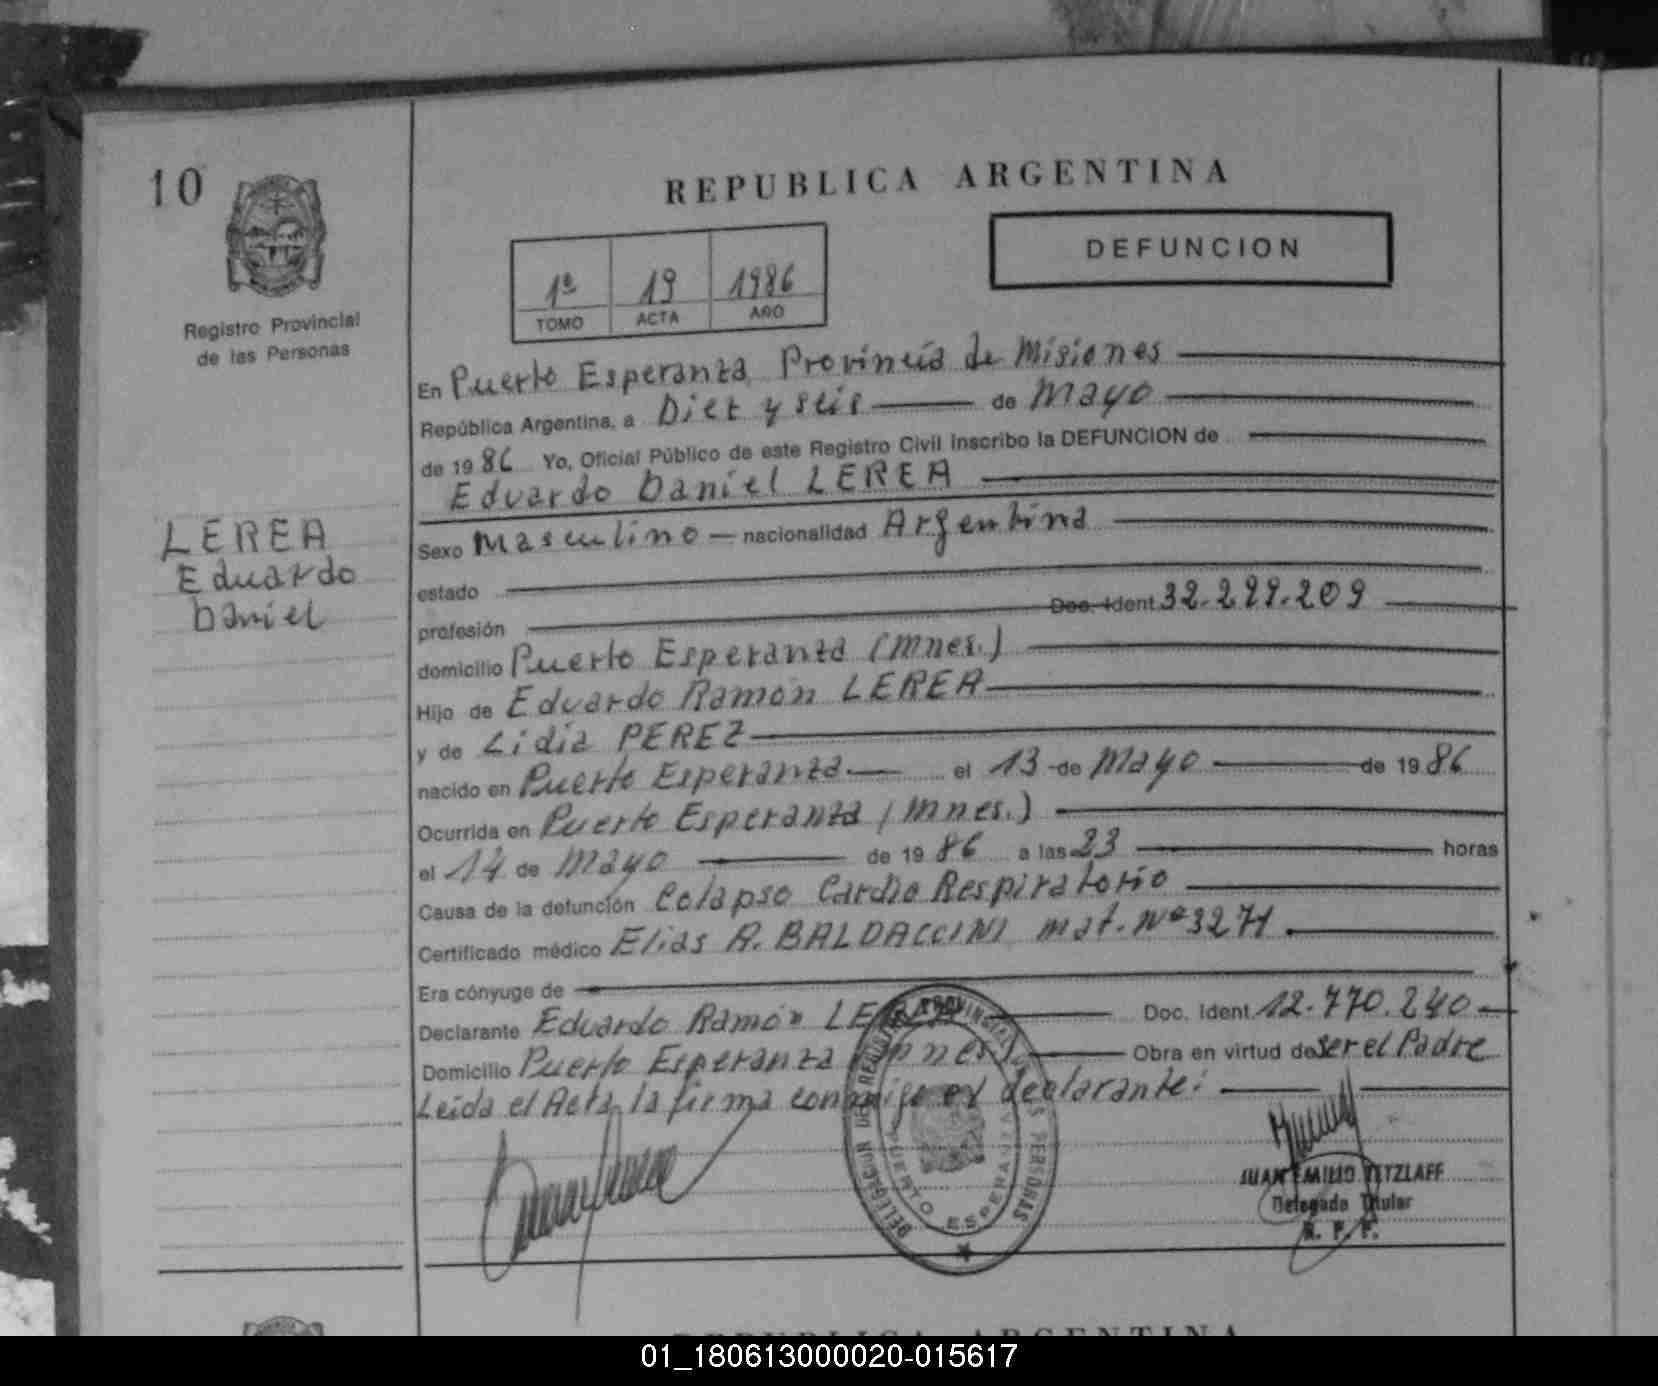 10
REPUBLICA ARGENTINA
DEFUNCION
1º 19 1986
TOMO ACTA AÑO
Registro Provincial
de las Personas
En Puerto Esperanza, Provincia de Misiones
República Argentina, a Diez y seis de Mayo
de 1986 Yo, Oficial Público de este Registro Civil inscribo la DEFUNCION de
Eduardo Daniel LEREA
LEREA
Eduardo
Daniel
Sexo Masculino nacionalidad Argentina
estado
profesión Doc. Ident 32.299.209
domicilio Puerto Esperanza (Mnes.)
Hijo de Eduardo Ramón LEREA
y de Lidia PEREZ
nacido en Puerto Esperanza el 13 de Mayo de 1986
Ocurrida en Puerto Esperanza (Mnes.)
el 14 de Mayo de 1986 a las 23 horas
Causa de la defunción Colapso Cardio Respiratorio
Certificado médico Elias A. BALDACCINI mat. Nº 3271
Era cónyuge de
Declarante Eduardo Ramón LEREA Doc. Ident. 12.770.240
Domicilio Puerto Esperanza (Mnes) Obra en virtud de ser el Padre
Leída el Acta, la firma conmigo el declarante:
DELEGACION DEL REGISTRO PROVINCIAL DE LAS PERSONAS
PUERTO ESPERANZA
JUAN EMILIO TETZLAFF
Delegado Titular
R. P. P.
REPUBLICA ARGENTINA
01_180613000020-015617